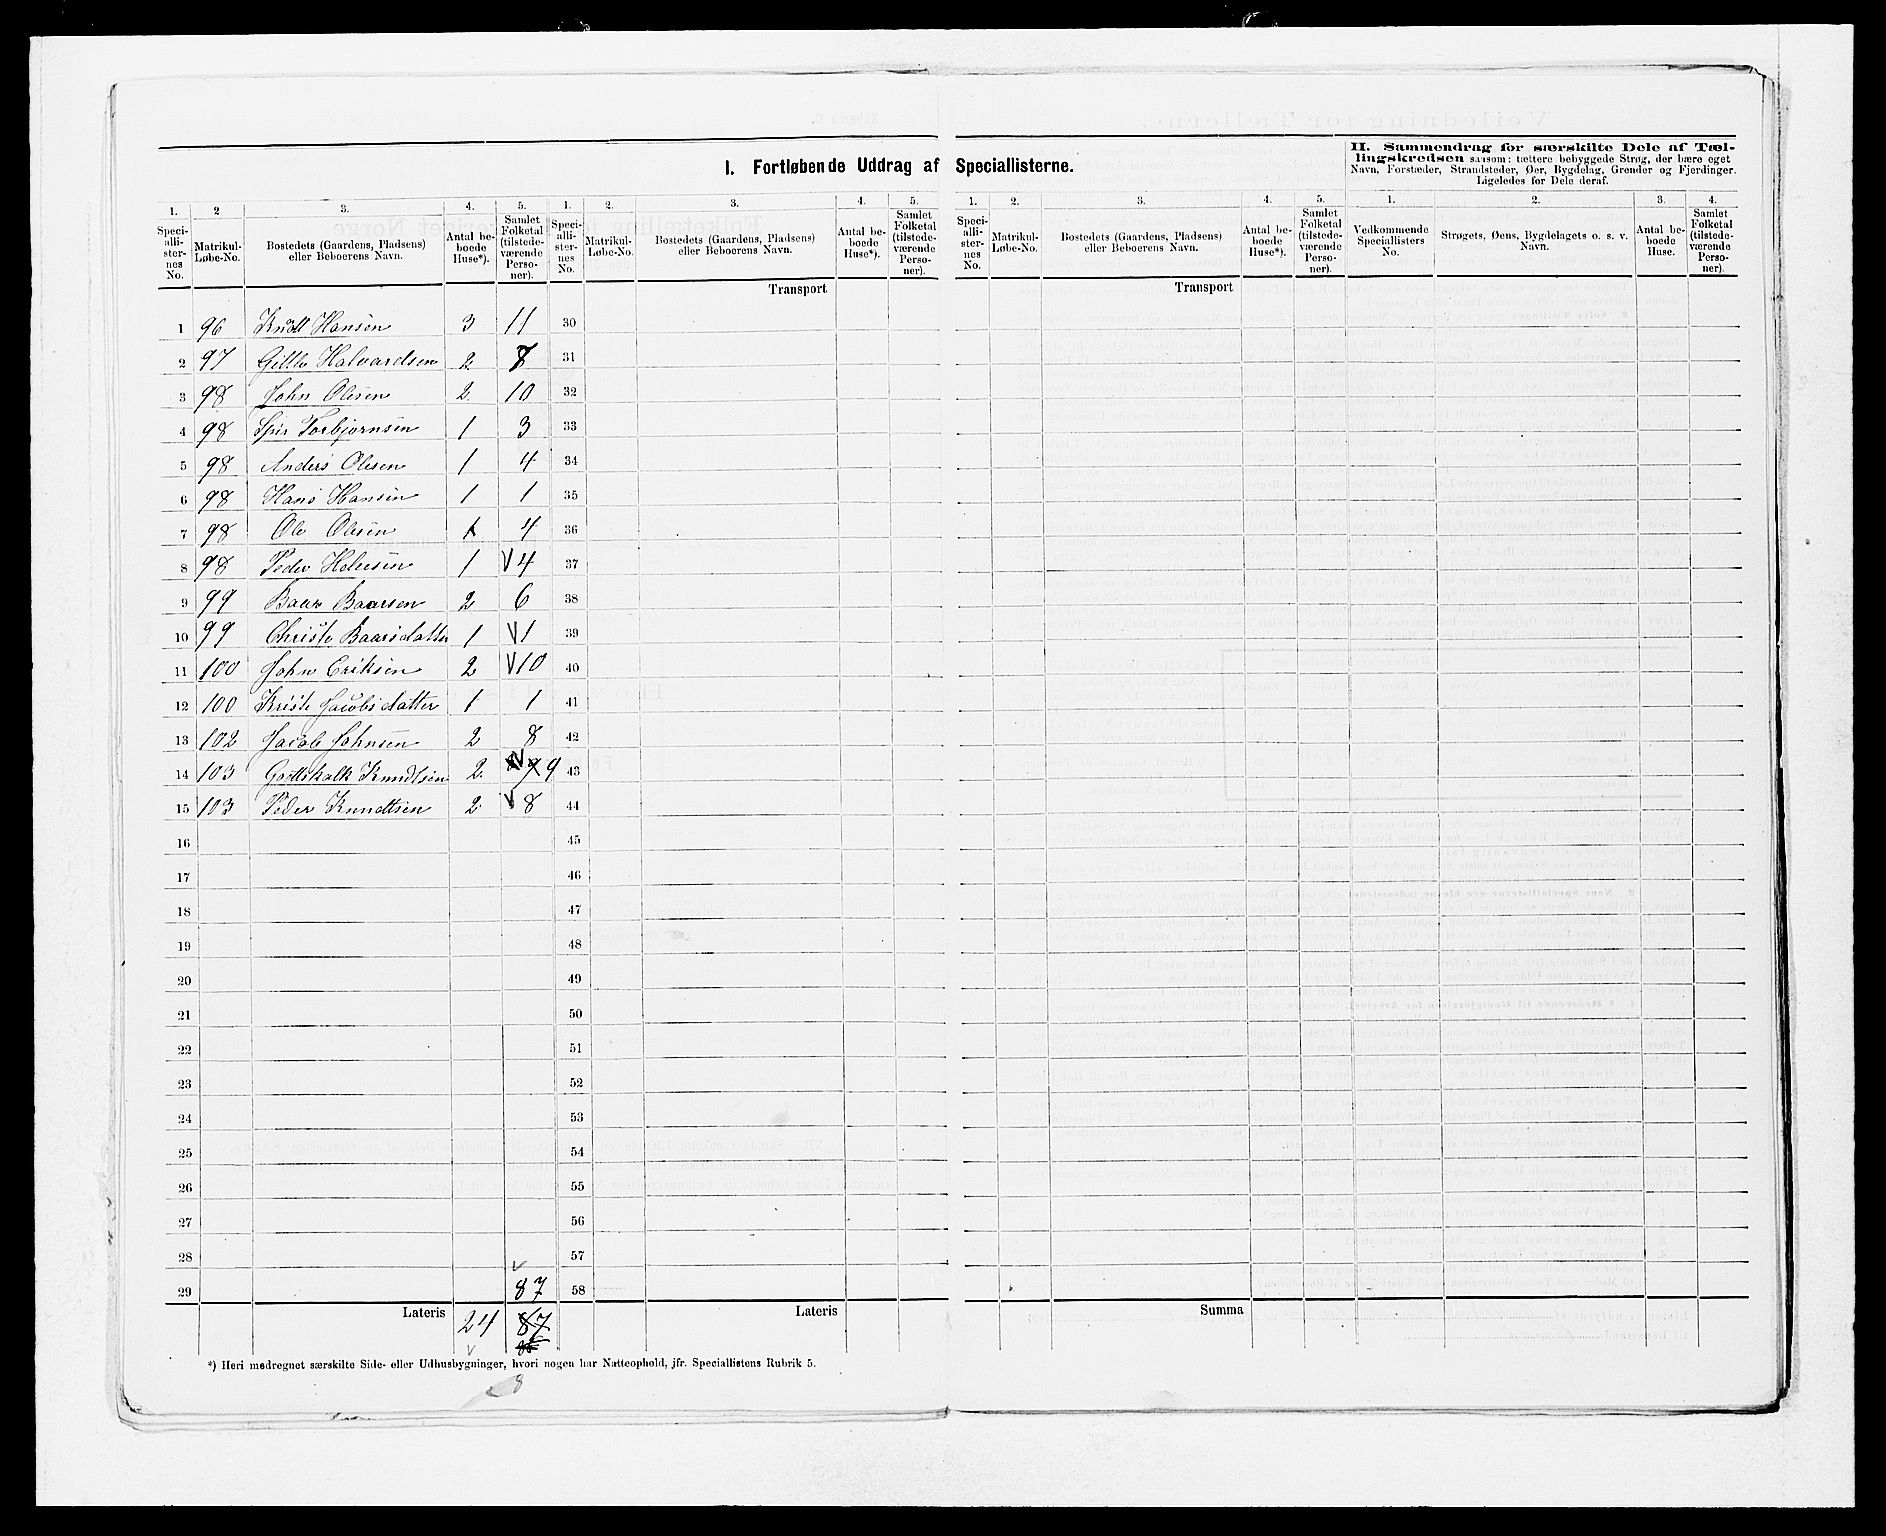 I. Fortløbende Uddrag af Speciallisterne.
II. Sammendrag for særskilte Dele af Tæl-
lingskredsen saasom: tættere bebyggede Strøg, der bære eget
Navn, Forstæder, Strandsteder, Øer, Bygdelag, Grender og Fjerdinger.
Ligeledes for Dele deraf.
1. 2 3. 4. 5. 1. 2. 3. 4. 5. 1. 2. 3. 4. 5. 1. 2. 3. 4.
Speci-
alli-
ster-
nes
No.
Matrikul-
Løbe-No.
Bostedets (Gaardens, Pladsens)
eller Beboerens Navn.
Antal be-
boede
Huse*).
Samlet
Folketal
(tilstede-
værende
Perso-
ner).
Speci-
alli-
ster-
nes
No.
Matrikul-
Løbe-No.
Bostedets (Gaardens, Pladsens)
eller Beboerens Navn.
Antal be-
boede
Huse*).
Samlet
Folketal
(tilstede-
værende
Perso-
ner).
Speci-
alli-
ster-
nes
No.
Matrikul-
Løbe-No.
Bostedets (Gaardens, Pladsens)
eller Beboerens Navn.
Antal be-
boede
Huse*).
Samlet
Folketal
(tilstede-
værende
Perso-
ner).
Vedkommende
Speciallisters
No.
Strøgets, Øens, Bygdelagets o. s. v.
Navn.
Antal be-
boede
Huse.
Samlet
Folketal
(tilstede-
værende
Perso-
ner).
Transport Transport
1 96 Knudt Hansen 3 11 30
2 97 Halvardsen 2 8 31
3 98 John Olesen 2 10 32
4 98 Torbjørnsen 1 3 33
5 98 Anders Olesen 1 4 34
6 98 Hans Hansen 1 1 35
7 98 Ole Olesen 1 4 36
8 98 Peder 1 4 37
9 99 Baar Baarsen 2 6 38
10 99 Christe Baarsdatter 1 1 39
11 100 John Eriksen 2 10 40
12 100 Kriste Jacobsdatter 1 1 41
13 102 Jacob Johnsen 2 8 42
14 103 Gottskalk Knudtsen 2 9 9 43
15 103 Peder Knudtsen 2 8 44
16 45
17 46
18 47
19 48
20 49
21 50
22 51
23 52
24 53
25 54
26 55
27 56
28 57
29 87 58
Lateris 24 87 Lateris Summa
*) Heri medregnet særskilte Side- eller Udhusbygninger, hvori nogen har Natteophold, jfr. Speciallistens Rubrik 5.